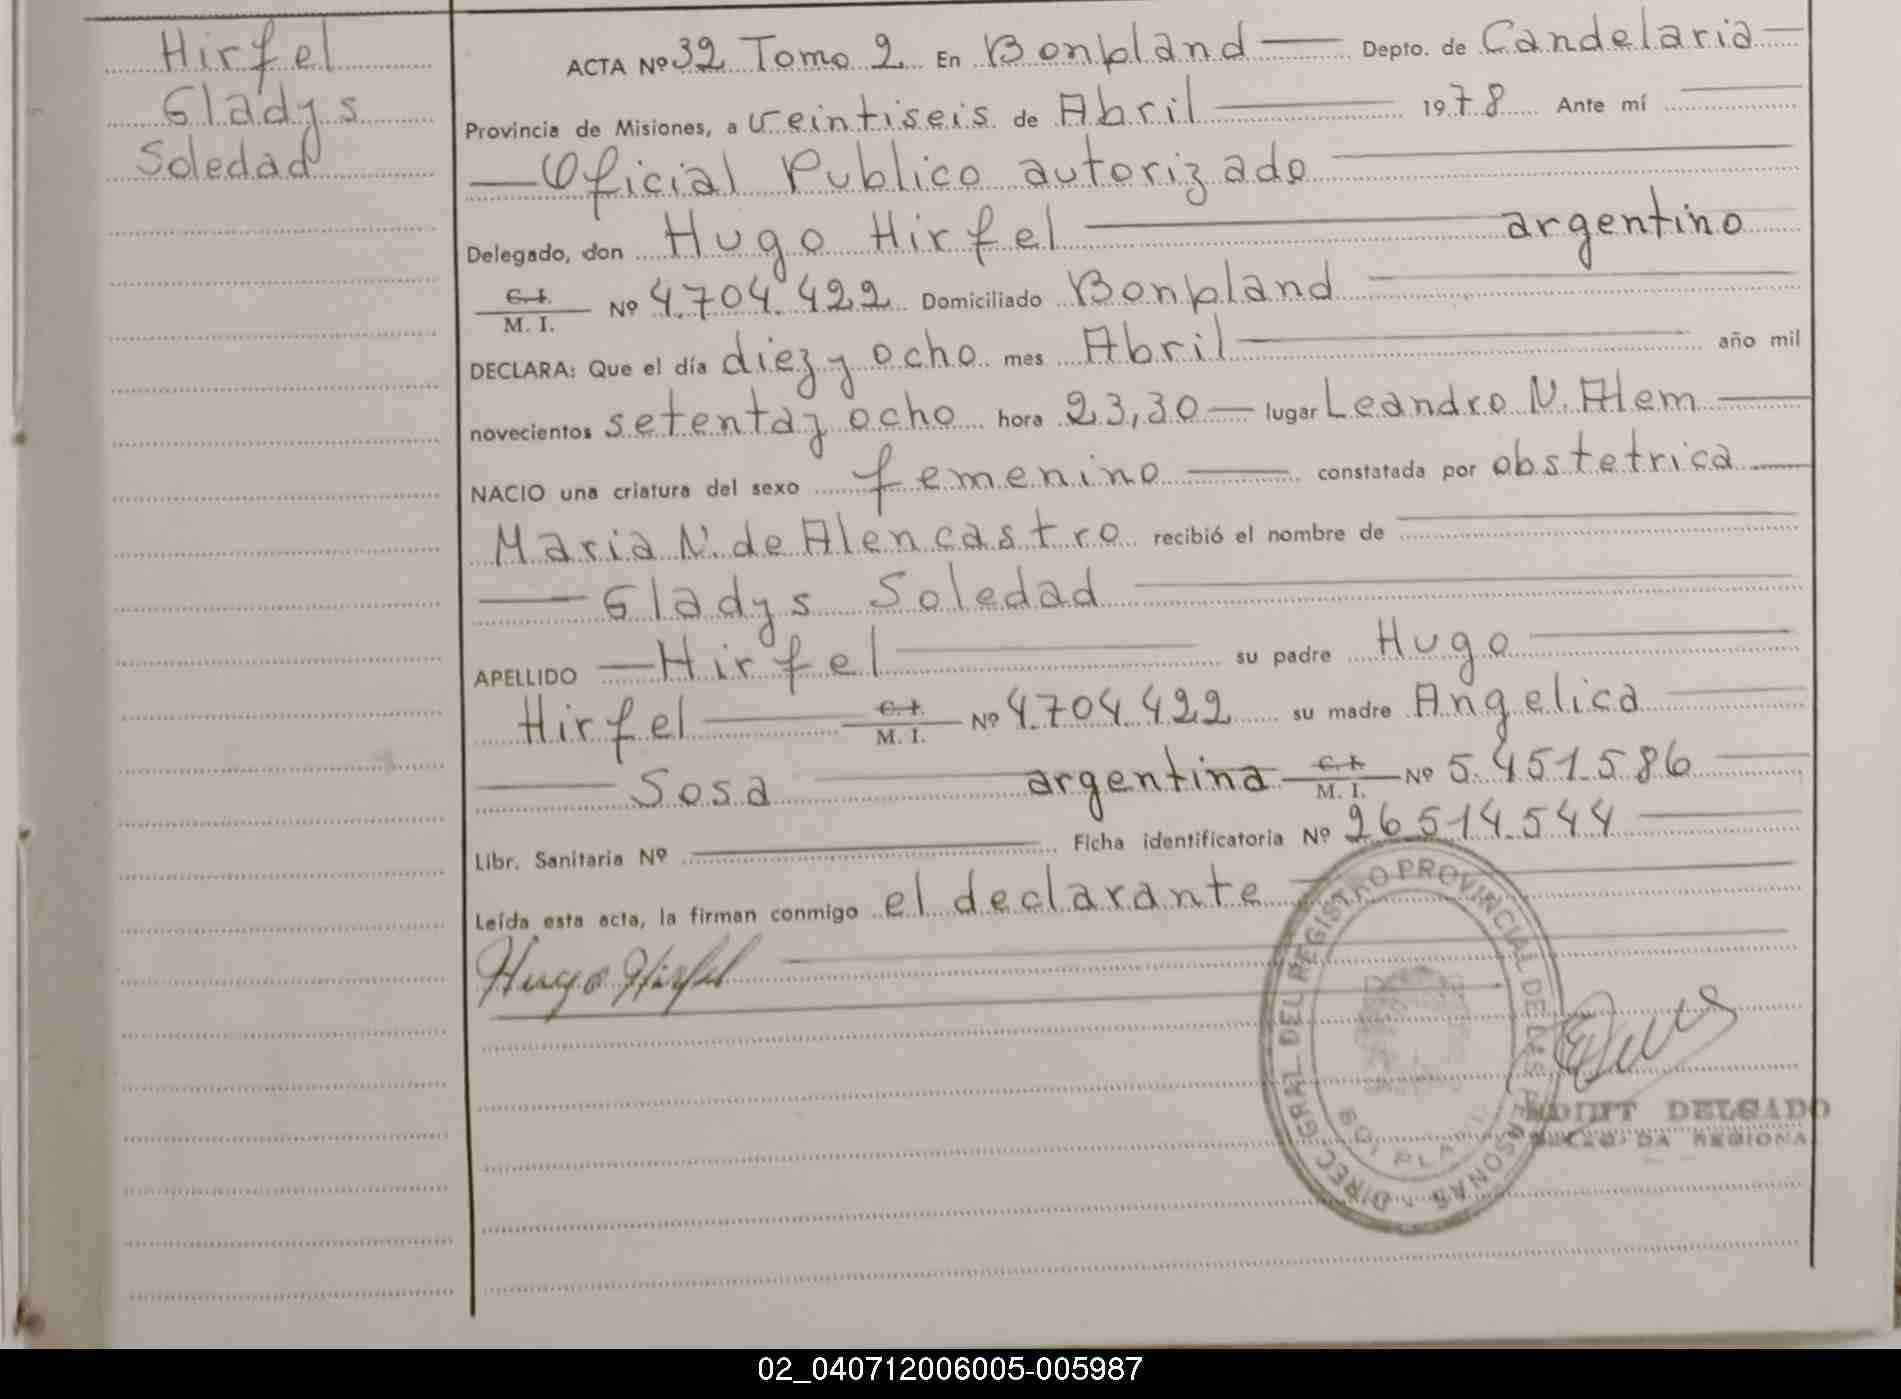 Hirfel
Gladys
Soledad
ACTA Nº 32 Tomo 2 En Bonpland Depto. de Candelaria
Provincia de Misiones, a veintiseis de Abril 1978 Ante mí
Oficial Publico autorizado
Delegado, don Hugo Hirfel argentino
C.I. M. I. Nº 4.704.422 Domiciliado Bonpland
DECLARA: Que el día diez y ocho mes Abril año mil
novecientos setenta y ocho hora 23,30 lugar Leandro N. Alem
NACIO una criatura del sexo femenino constatada por obstetrica
Maria N. de Alencastro recibió el nombre de
Gladys Soledad
APELLIDO Hirfel su padre Hugo
Hirfel C.I. M. I. Nº 4.704.422 su madre Angelica
Sosa argentina C.I. M. I. Nº 5.451.586
Libr. Sanitaria Nº Ficha identificatoria Nº 26.514.544
Leída esta acta, la firman conmigo el declarante
Hugo Hirfel
DIREC. GRAL. DEL REGISTRO PROVINCIAL DE LAS PERSONAS
DELGADO
02_040712006005-005987